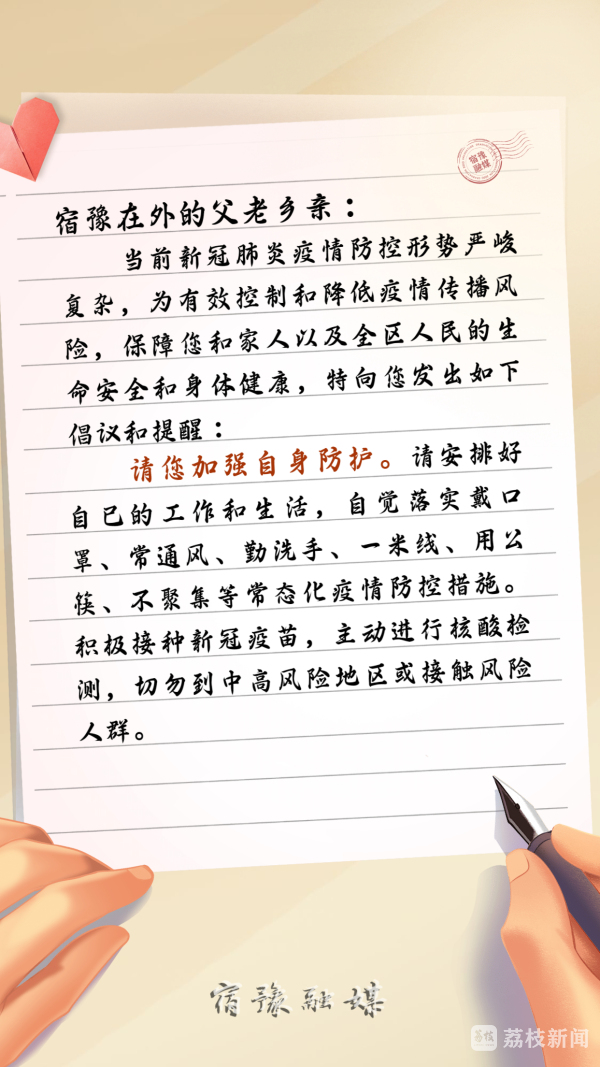 宿豫
融媒
宿豫在外的父老乡亲：
当前新冠肺炎疫情防控形势严峻
复杂，为有效控制和降低疫情传播风
险，保障您和家人以及全区人民的生
命安全和身体健康，特向您发出如下
倡议和提醒：
请您加强自身防护。请安排好
自已的工作和生活，自觉落实戴口
罩、常通风、勤洗手、一米线、用公
筷、不聚集等常态化疫情防控措施。
积极接种新冠疫苗，主动进行核酸检
测，切勿到中高风险地区或接触风险
人群。
宿豫融媒
荔枝 荔枝新闻